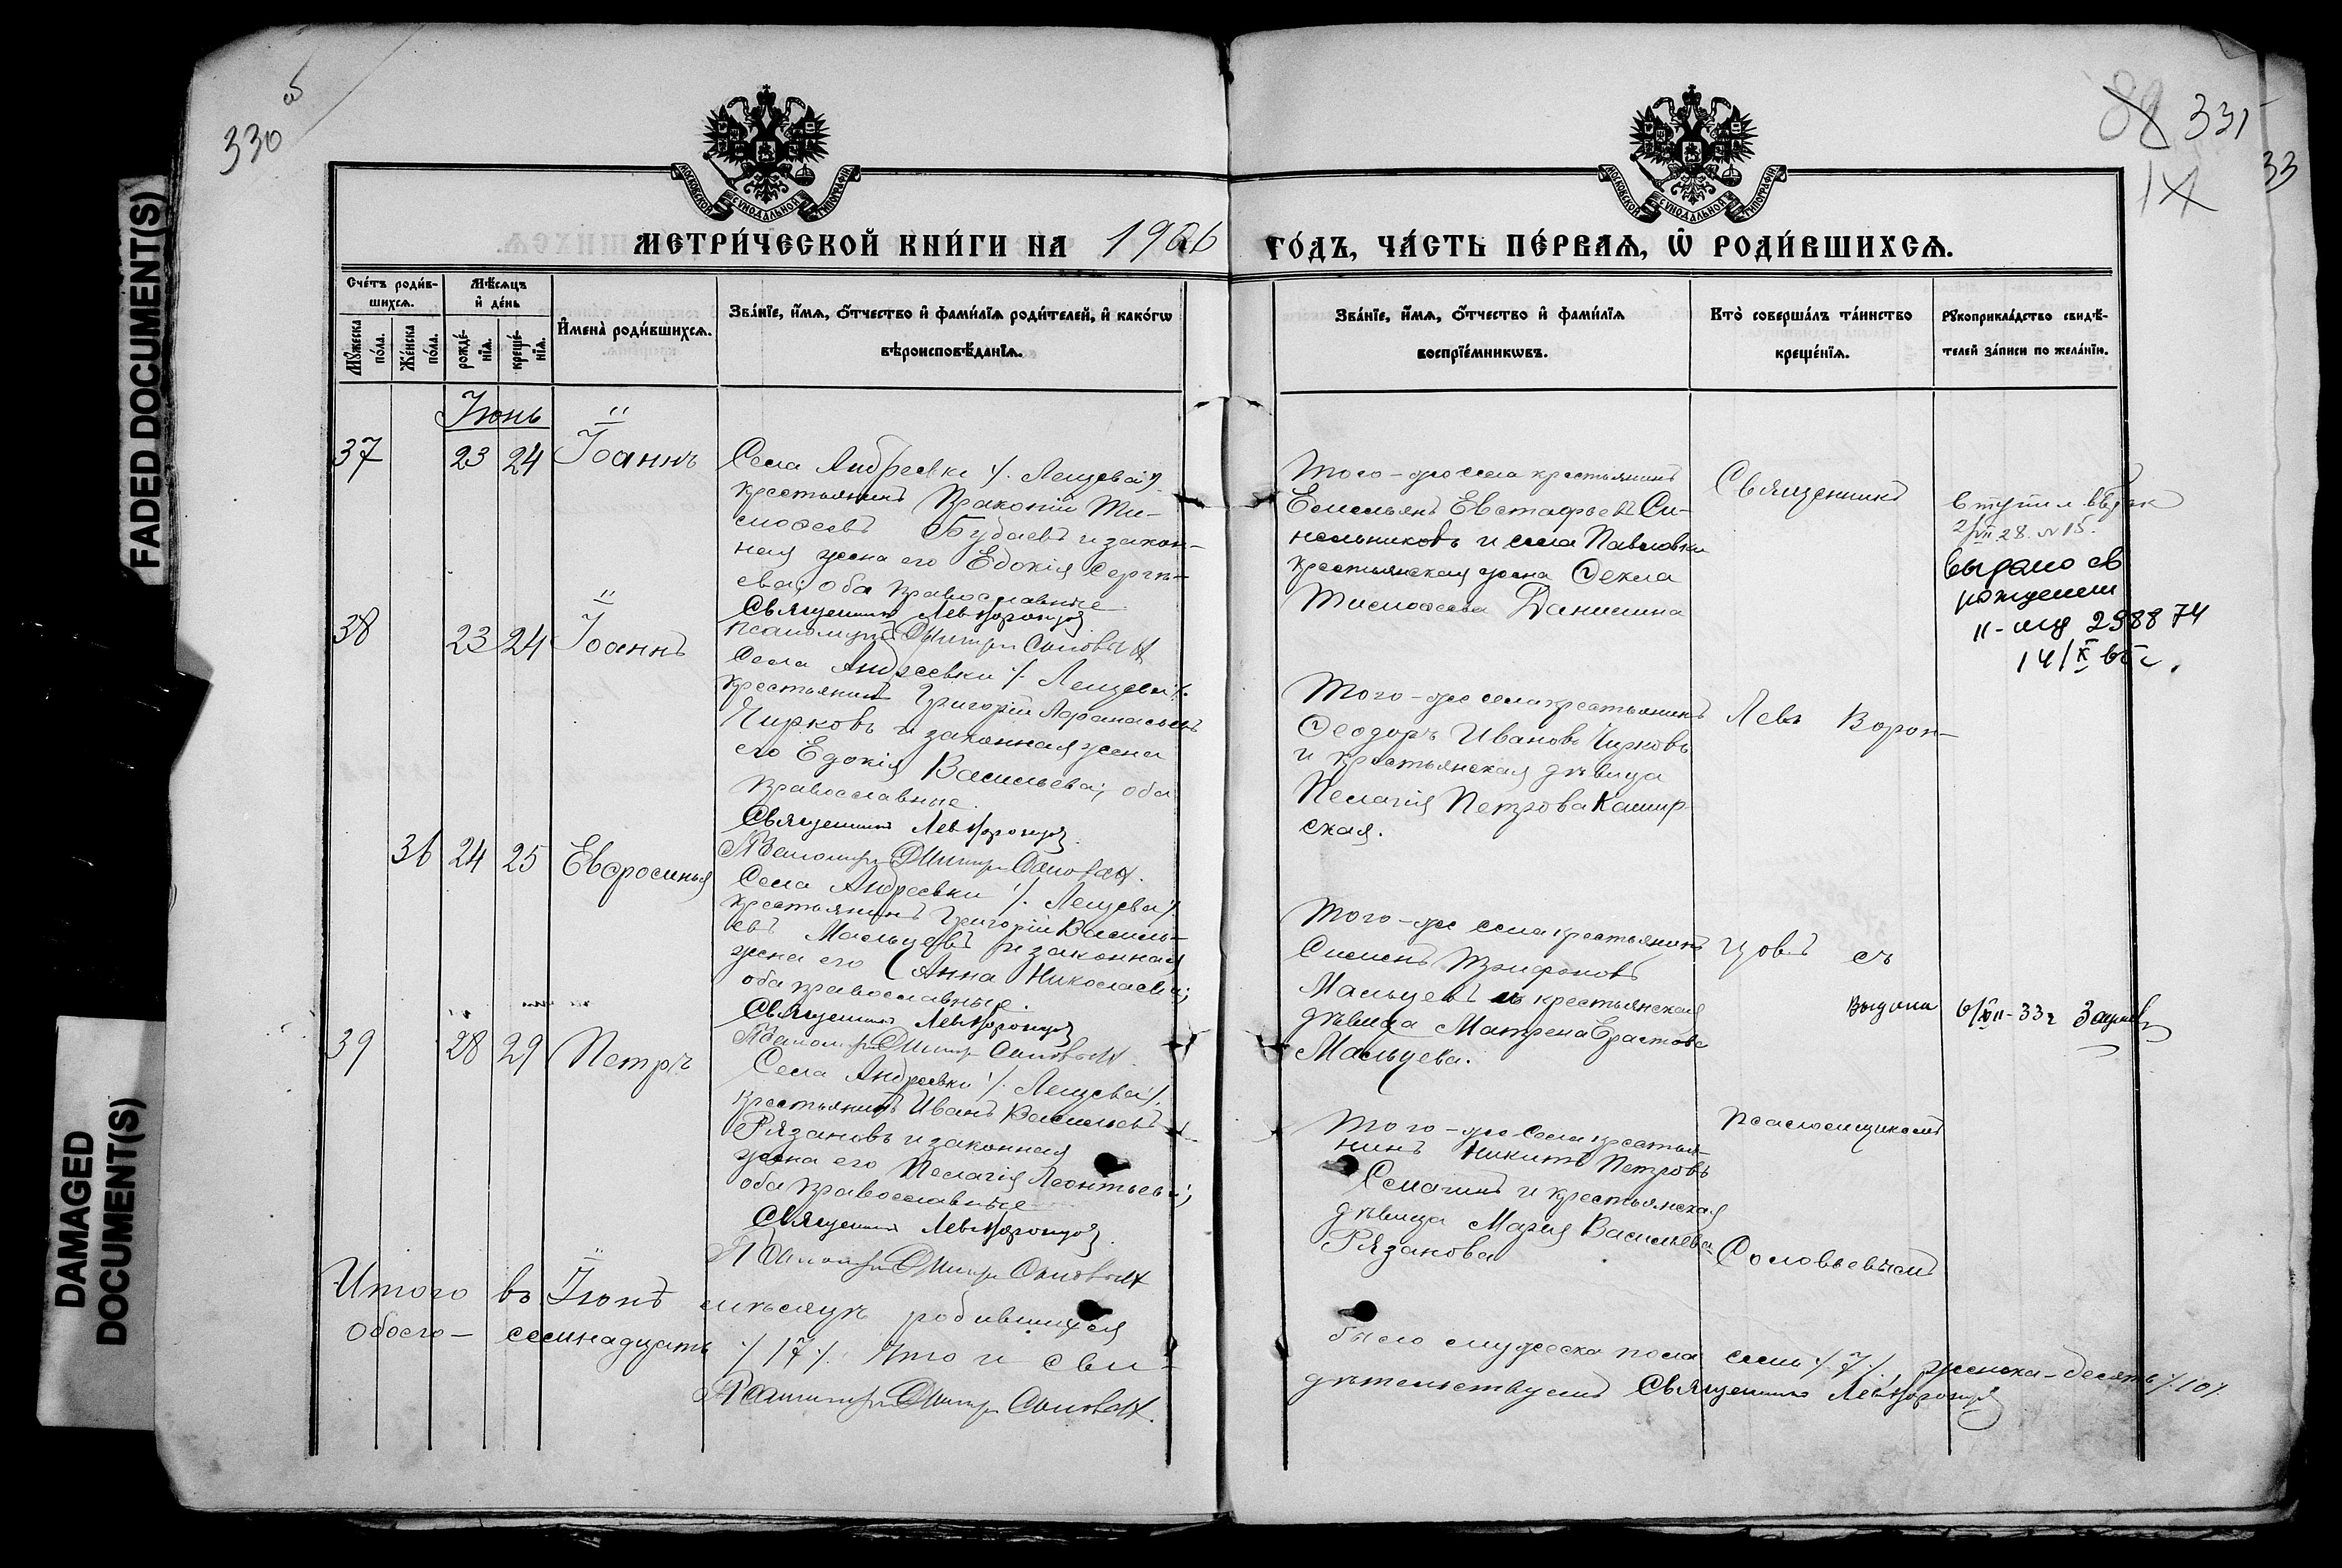 330 об
88 331
33
IX
МОСКОВСКОЙ СѴНОДАЛЬНОЙ ТИПОГРАФІИ
МОСКОВСКОЙ СѴНОДАЛЬНОЙ ТИПОГРАФІИ
МЕТРИ́ЧЕСКОЙ КНИ́ГИ НА 1906 ГО́ДЪ, ЧА́СТЬ ПЕ́РВАѦ, Ѿ РОДИ́ВШИХСѦ.
Сче́тъ роди́в-
шихсѧ.
Мꙋ́жеска
по́ла.
Же́нска
по́ла.
Мѣ́сѧцъ
и҆ де́нь
рожде́-
нїѧ.
креще́-
нїѧ.
И҆мена̀ роди́вшихсѧ.
Зва́нїе, и҆́мѧ, ѻ҆́тчество и҆ фами́лїѧ роди́телей, и҆ како́гѡ
вѣроисповѣ́данїѧ.
Зва́нїе, и҆́мѧ, ѻ҆́тчество и҆ фами́лїѧ
воспрїе́мникѡвъ.
Кто̀ соверша́лъ та́инство
креще́нїѧ.
Рꙋкоприкла́дство свидѣ́-
телей за́писи по жела́нїю.
Іюнь
37 23 24 Іоаннъ
Села Андреевки /. Лещева ./
крестьянинъ Прокопій Ти-
моѳеевъ Будаевъ и закон-
ная жена его Евдокія Сергѣ-
ева; оба православные.
Священникъ Лев Воронцов
Псаломщикъ Дмитрій Соловьев
Того-же села крестьянинъ
Емельянъ Евстафьевъ Си-
нельниковъ и села Павловки
крестьянская жена Ѳекла
Тимоѳеева Данилина
Священникъ
вступил в брак
2/VII 28. N 15.
выдано св
рождении
II- 298874
14/X 65 г.
38 23 24 Іоаннъ
Села Андреевки /. Лещева ./
крестьянинъ Григорій Афанасьевъ
Чирковъ и законная жена
его Евдокія Васильева; оба
православные.
Священникъ Лев Воронцов
Псаломщикъ Дмитрій Соловьев
Того-же села крестьянинъ
Ѳеодоръ Ивановъ Чирковъ
и крестьянская дѣвица
Пелагія Петрова Кашир-
ская.
Левъ Ворон-
36 24 25 Евфросинья
Села Андреевки /. Лещева ./
крестьянинъ Григорій Василь-
евъ Мальцевъ и законная
жена его Анна Николаева;
оба православные.
Священникъ Лев Воронцов
Псаломщикъ Дмитрій Соловьев
Того-же села крестьянинъ
Симеонъ Трифоновъ
Мальцевъ и крестьянская
дѣвица Матрена Ерастова
Мальцева.
цовъ съ
Выдана 6/VII-33 г
39 28 29 Петръ
Села Андреевки /. Лещева ./
крестьянинъ Иванъ Васильевъ
Рязановъ и законная
жена его Пелагія Леонтьева;
оба православные
Священникъ Лев Воронцов
Псаломщикъ Дмитрій Соловьев
Того-же села крестья-
нинъ Никита Петровъ
и крестьянская
дѣвица Марія Васильева
Рязанова
псаломщикомъ
Соловьевымъ
Итого въ Іюнѣ мѣсяцѣ родившихся было мужеска пола семь /.7./, женска-десять /.10./
обоего-семнадцать /.17./. Что и сви-дѣтельствуемъ Священникъ Лев Воронцов
Псаломщикъ Дмитрій Соловьев
FADED DOCUMENT(S)
DAMAGED
DOCUMENT(S)